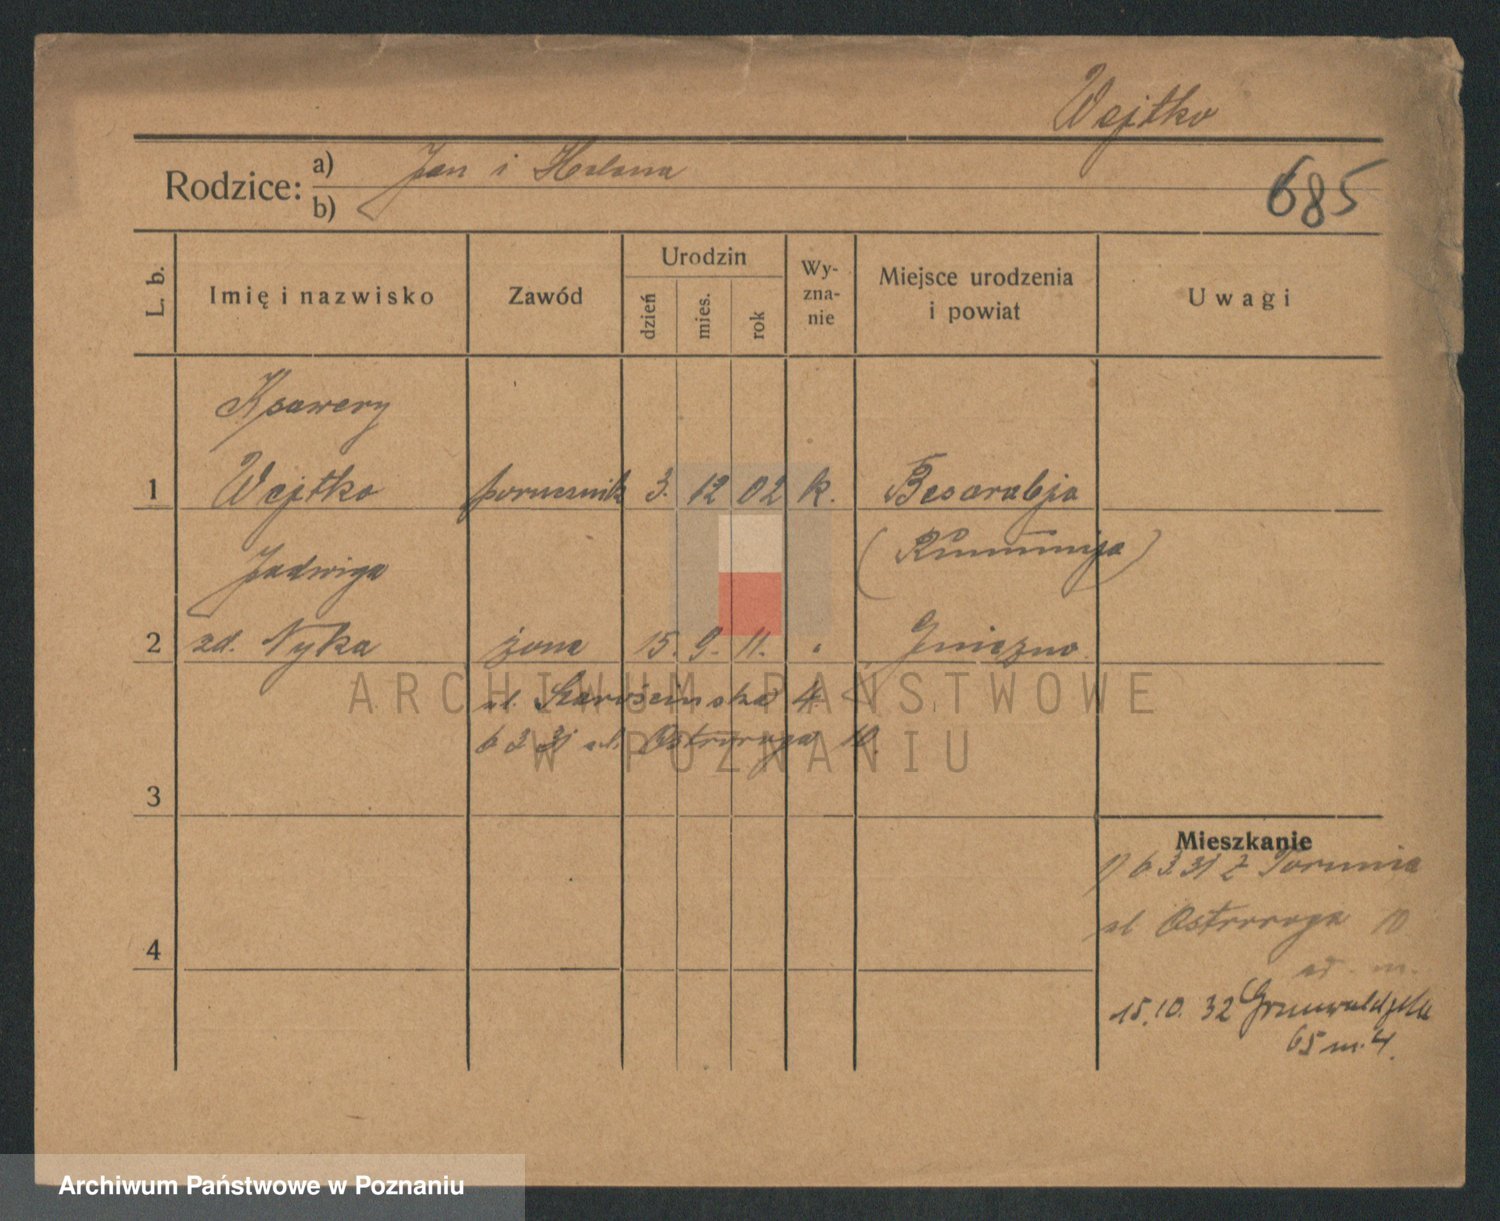 Wejtko
Rodzice: a) Jan i Helena
b)
685
L. b.
Imię i nazwisko
Zawód
Urodzin
dzień
mies.
rok
Wy-
zna-
nie
Miejsce urodzenia
i powiat
Uwagi
Ksawery
1 Wejtko porucznik 3. 12 02 k. Besarabja
(Rumunija)
Jadwiga
2 zd. Nyka żona 15. 9. 11. " Gniezno
ul. 4
6 3 31 ul. Ostroroga 10.
3
Mieszkanie
6 3 31 z Torunia
ul Ostroroga 10
4
15.10. 32 Grunwaldzka
65 m. 4.
ARCHIWUM PAŃSTWOWE
W POZNANIU
Archiwum Państwowe w Poznaniu